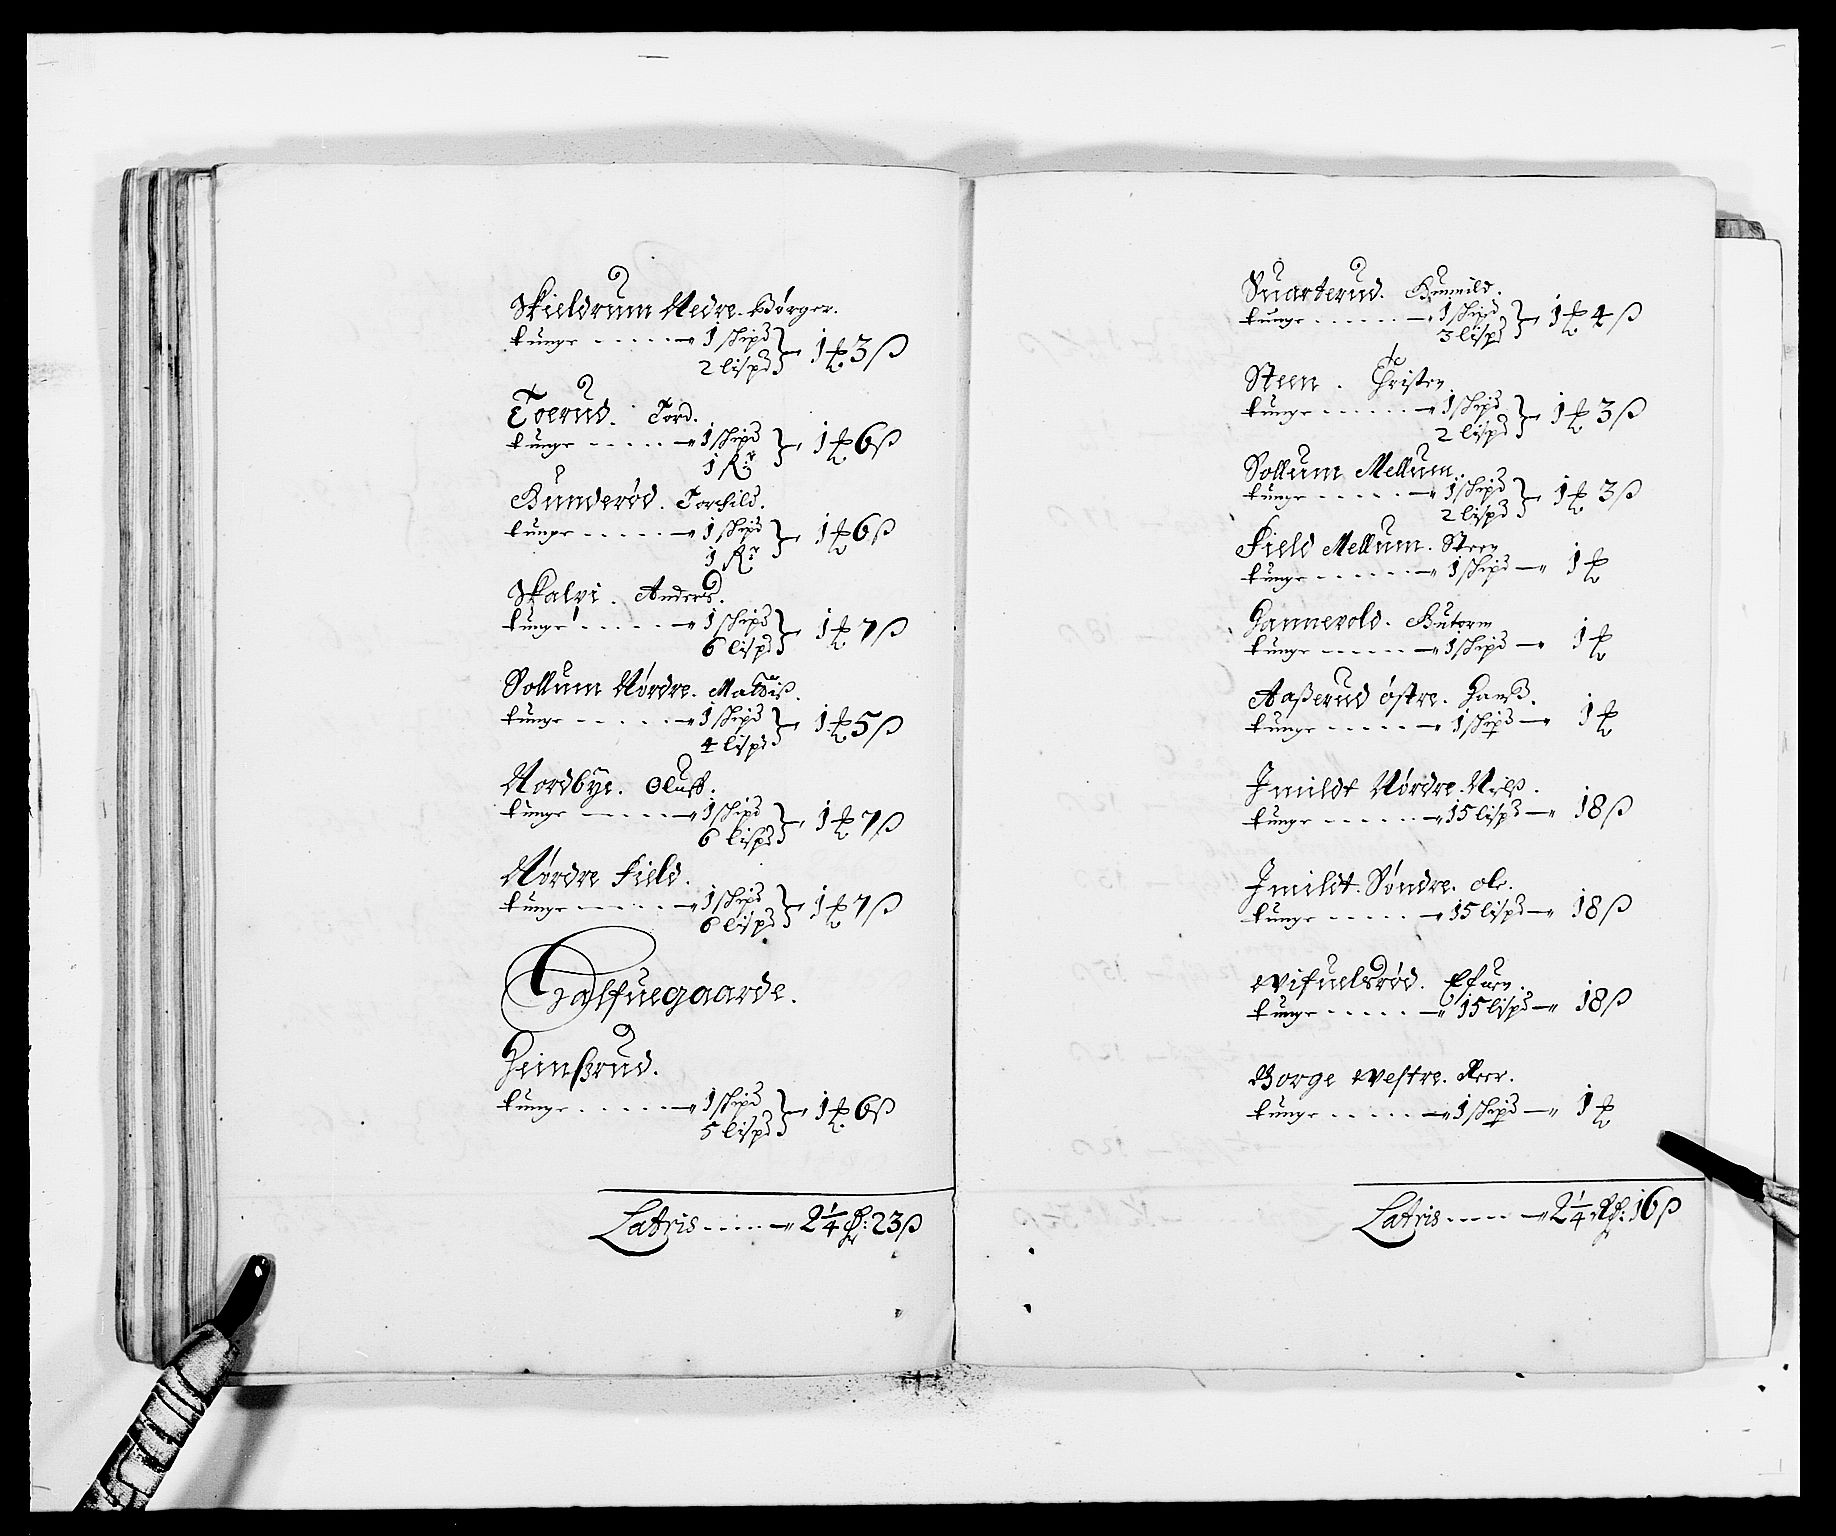 Skieldrum Nedre. Børger.
tunge ..... 1 skipd
2 lispd } 1 ₶ 3 ß
Toerud. Tord.
tunge ..... 1 skipd
1 Rr } 1 ₶ 6 ß
Gunderød. Torkild.
tunge ..... 1 skipd
1 Rr } 1 ₶ 6 ß
Skalvi. Anders.
tunge ..... 1 skipd
6 lispd } 1 ₶ 7 ß
Sollum Nørdre. Mattis.
tunge ..... 1 skipd
4 lispd } 1 ₶ 5 ß
Nordbye. Oluff.
tunge ..... 1 skipd
6 lispd } 1 ₶ 7 ß
Nørdre Field.
tunge ..... 1 skipd
6 lispd } 1 ₶ 7 ß
Halfuegaarde.
Heinßrud.
tunge ..... 1 skipd
5 lispd } 1 ₶ 6 ß
Latris ..... 2 1/4 : 23 ß
Suarterud. Gunnild.
tunge ..... 1 skipd
3 lispd } 1 ₶ 4 ß
Steen. Christen
tunge ..... 1 skipd
2 lispd } 1 ₶ 3 ß
Sollum Mellum.
tunge ..... 1 skipd
2 lispd } 1 ₶ 3 ß
Field Mellum. Steen
tunge ..... 1 skipd — 1 ₶
Hannevold. Gutorm
tunge ..... 1 skipd — 1 ₶
Aaßerud østre. Hanß.
tunge ..... 1 skipd — 1 ₶
Jmildt Nørdre. Nielß.
tunge ..... 15 lispd — 18 ß
Jmildt. Søndre. ole.
tunge ..... 15 lispd — 18 ß
Wifuelsrød.
tunge ..... 15 lispd — 18 ß
Borge westre. Peer.
tunge ..... 1 skipd — 1 ₶
Latris ..... 2 1/4 Rd: 16 ß